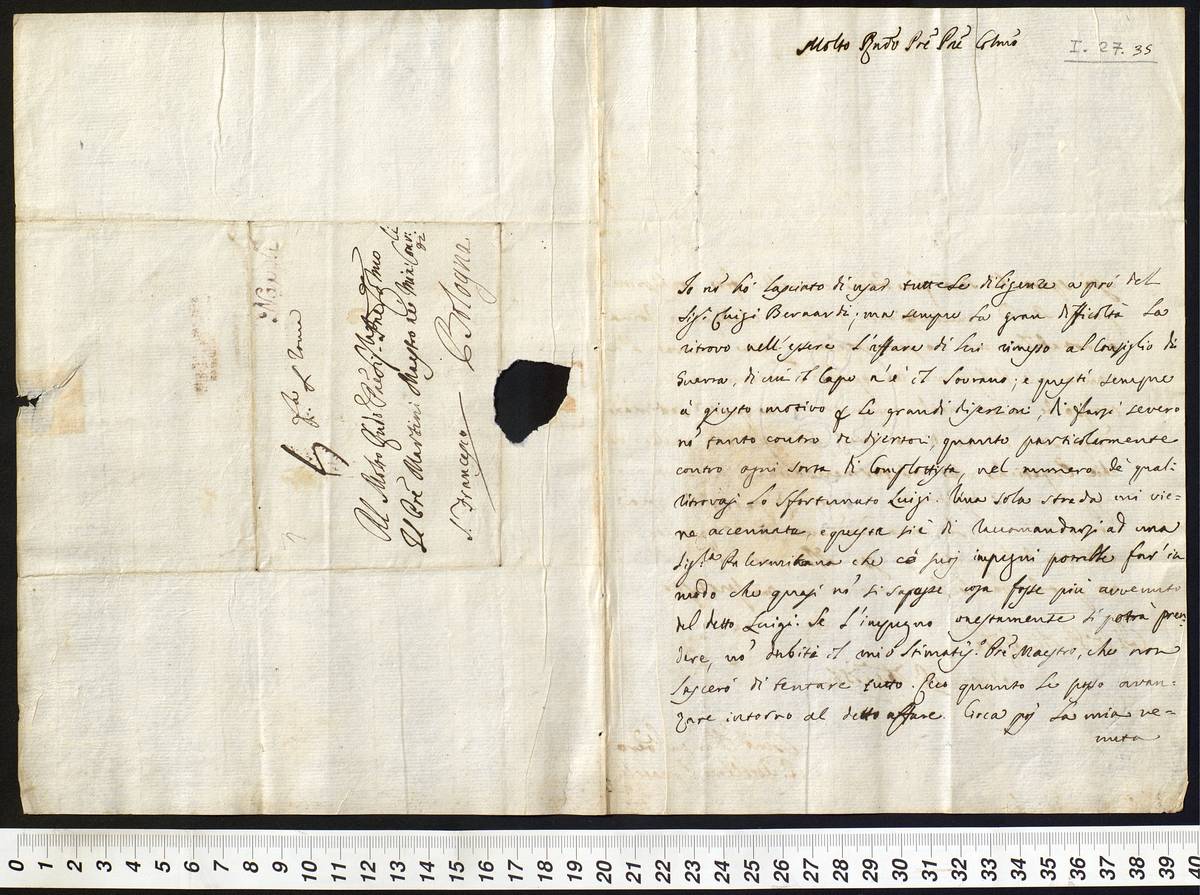 Molto Rndo Pre Pre Colmo
I. 27. 35
Io nò hò lasciato di usar tutte le diligenze a pró del
Sig.r Luigi Bernardi; ma sempre la gran difficoltà la
ritrovo nell'essere l'affare di lui rimesso al Consiglio di
Guerra, di cui il Capo n'è il Sovrano; e questi sempre
à giusto motivo p le grandi diserzioni, di farsi severo
nò tanto contro de disertori, quanto particolarmente
contro ogni sorta di Complottista, nel numero de quali
ritrovasi lo sfortunato Luigi. Una sola strada mi vie=
ne accennata, e questa si è di raccomandarsi ad una
Sig.ra Palermitana che có suoi impegni potrebbe far' in
modo che quasi nò si sapesse cosa fosse più avvenuto
del detto Luigi. Se l'impegno onestamente si potrà pren=
dere, nò dubiti il mio Stimatis.o Pre Maestro, che non
lascerò di tentare tutto. Ecco quanto le posso avan=
zare intorno al detto affare. Circa poi la mia ve=
nuta
Napoli
Fa p. Roma
Al Molto Rndo Pre
Il Pre Martini Maestro de Min: Conv:li
di
S. Francesco Bologna.
0 1 2 3 4 5 6 7 8 9 10 11 12 13 14 15 16 17 18 19 20 21 22 23 24 25 26 27 28 29 30 31 32 33 34 35 36 37 38 39 40